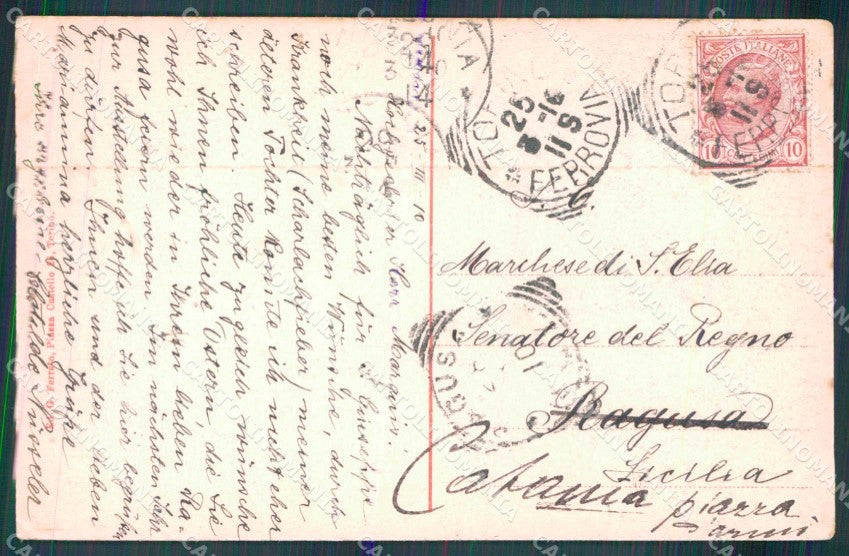 25 III 10
Herr Marquis!
Nachträglich für S. Giuseppe
noch meine besten Wünsche, durch
Krankheit (Scharlachfieber) meiner
älteren Tochter konnte ich nicht eher
schreiben. Heute zugleich wünsche
ich Ihnen fröhliche Ostern, die Sie
wohl wieder in Ihrem lieben Ra-
gusa feiern werden. Im nächsten Jahr
zur Ausstellung hoffe ich Sie hier begrüßen
zu dürfen. Ihnen und der lieben
Marianna herzliche Grüße
Ihre ergebene Clotilde
Ferrero, Piazza Castello, Torino.
POSTE ITALIANE
10 10
TORINO
FERROVIA
25
TORINO
25
FERROVIA
RAGUSA
Marchese di S. Elia
Senatore del Regno
Ragusa
Sicilia
Catania piazza
CARTOLINOMANIA